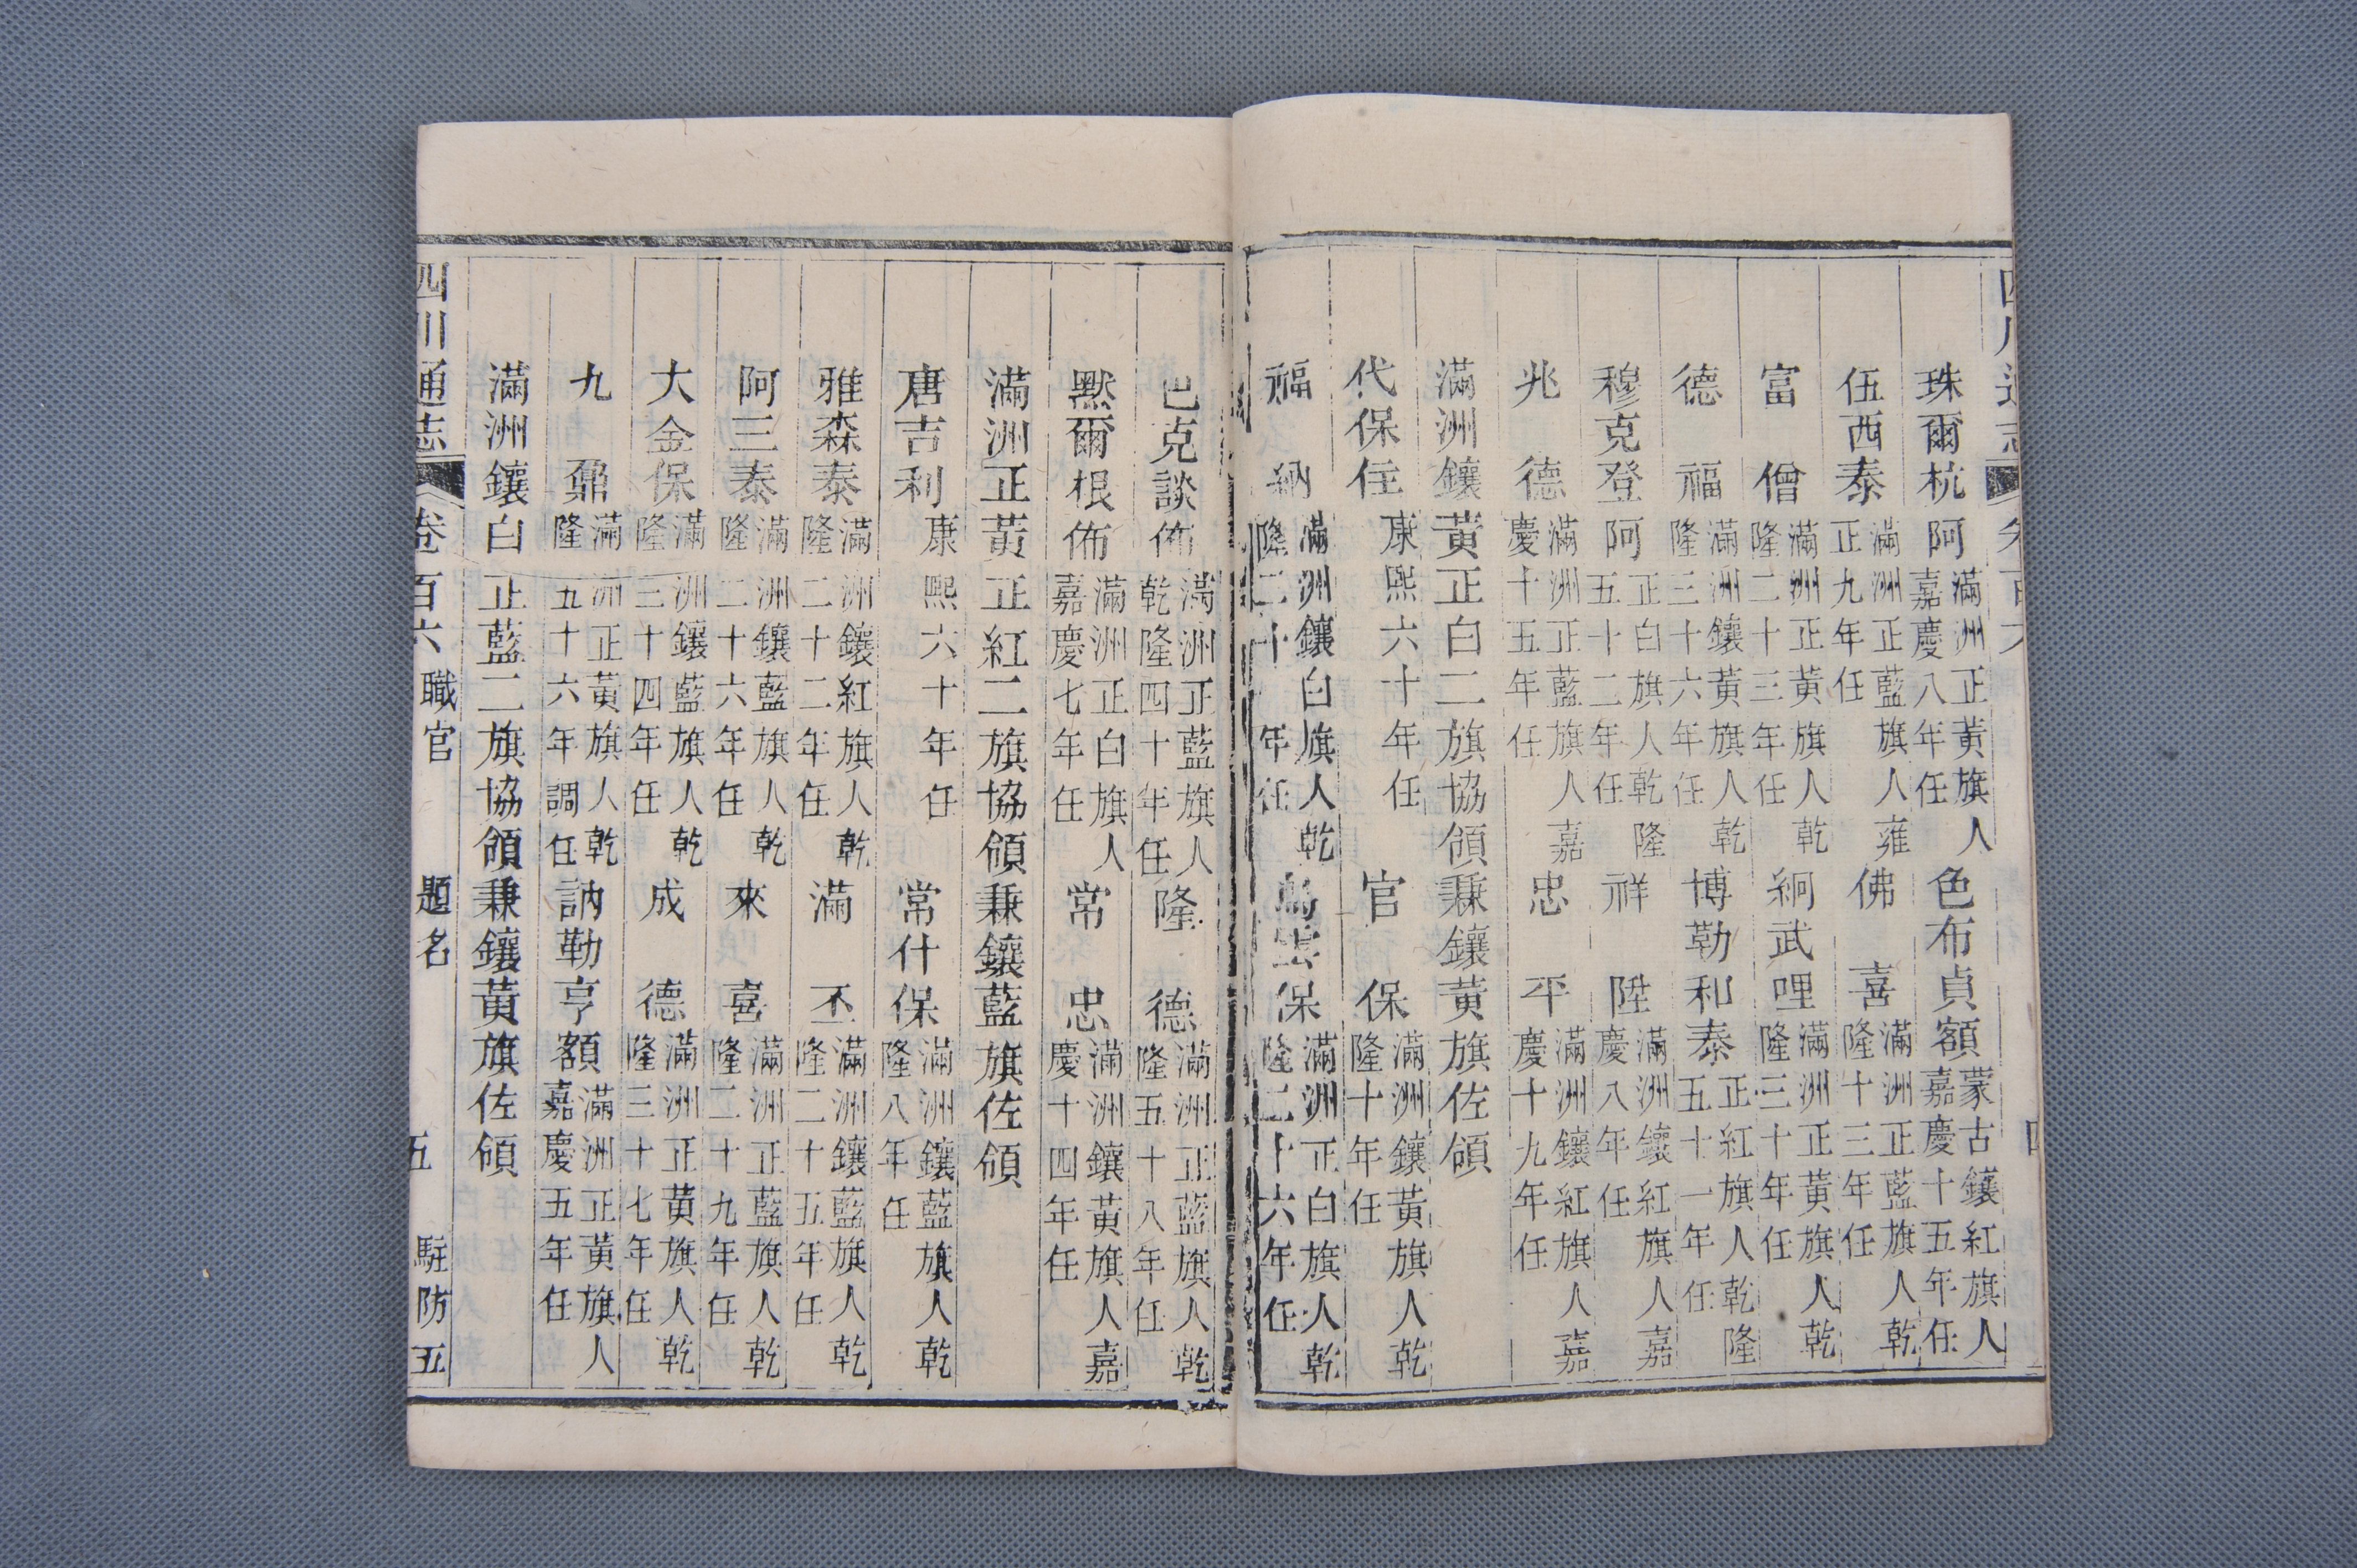 珠爾杭阿滿洲正黃旗人嘉慶八年任 色布貞額蒙古鑲紅旗人嘉慶十五年任
伍西泰滿洲正藍旗人雍正九年任 佛喜滿洲正藍旗人乾隆十三年任
富僧滿洲正黃旗人乾隆二十三年任 絅武哩滿洲正黃旗人乾隆三十年任
德福滿洲鑲黃旗人乾隆三十六年任 博勒和泰正紅旗人乾隆五十一年任
穆克登阿正白旗人乾隆五十二年任 祥陞滿洲鑲紅旗人嘉慶八年任
兆德滿洲正藍旗人嘉慶十五年任 忠平滿洲鑲紅旗人嘉慶十九年任
滿洲鑲黃正白二旗協領兼鑲黃旗佐領
代保住康熙六十年任 官保滿洲鑲黃旗人乾隆十年任
福納滿洲鑲白旗人乾隆二十年任 烏雲保滿洲正白旗人乾隆二十六年任
巴克談佈滿洲正藍旗人乾隆四十年任 隆德滿洲正藍旗人乾隆五十八年任
默爾根佈滿洲正白旗人嘉慶七年任 常忠滿洲鑲黃旗人嘉慶十四年任
滿洲正黃正紅二旗協領兼鑲藍旗佐領
唐吉利康熙六十年任 常什保滿洲鑲藍旗人乾隆八年任
雅森泰滿洲鑲紅旗人乾隆二十二年任 滿丕滿洲鑲藍旗人乾隆二十五年任
阿三泰滿洲鑲藍旗人乾隆二十六年任 來喜滿洲正藍旗人乾隆二十九年任
大金保滿洲鑲藍旗人乾隆三十四年任 成德滿洲正黃旗人乾隆三十七年任
九鼐滿洲正黃旗人乾隆五十六年調任 訥勒亨額滿洲正黃旗人嘉慶五年任
滿洲鑲白正藍二旗協領兼鑲黃旗佐領
四川通志 卷百六 職官 題名 五 駐防五